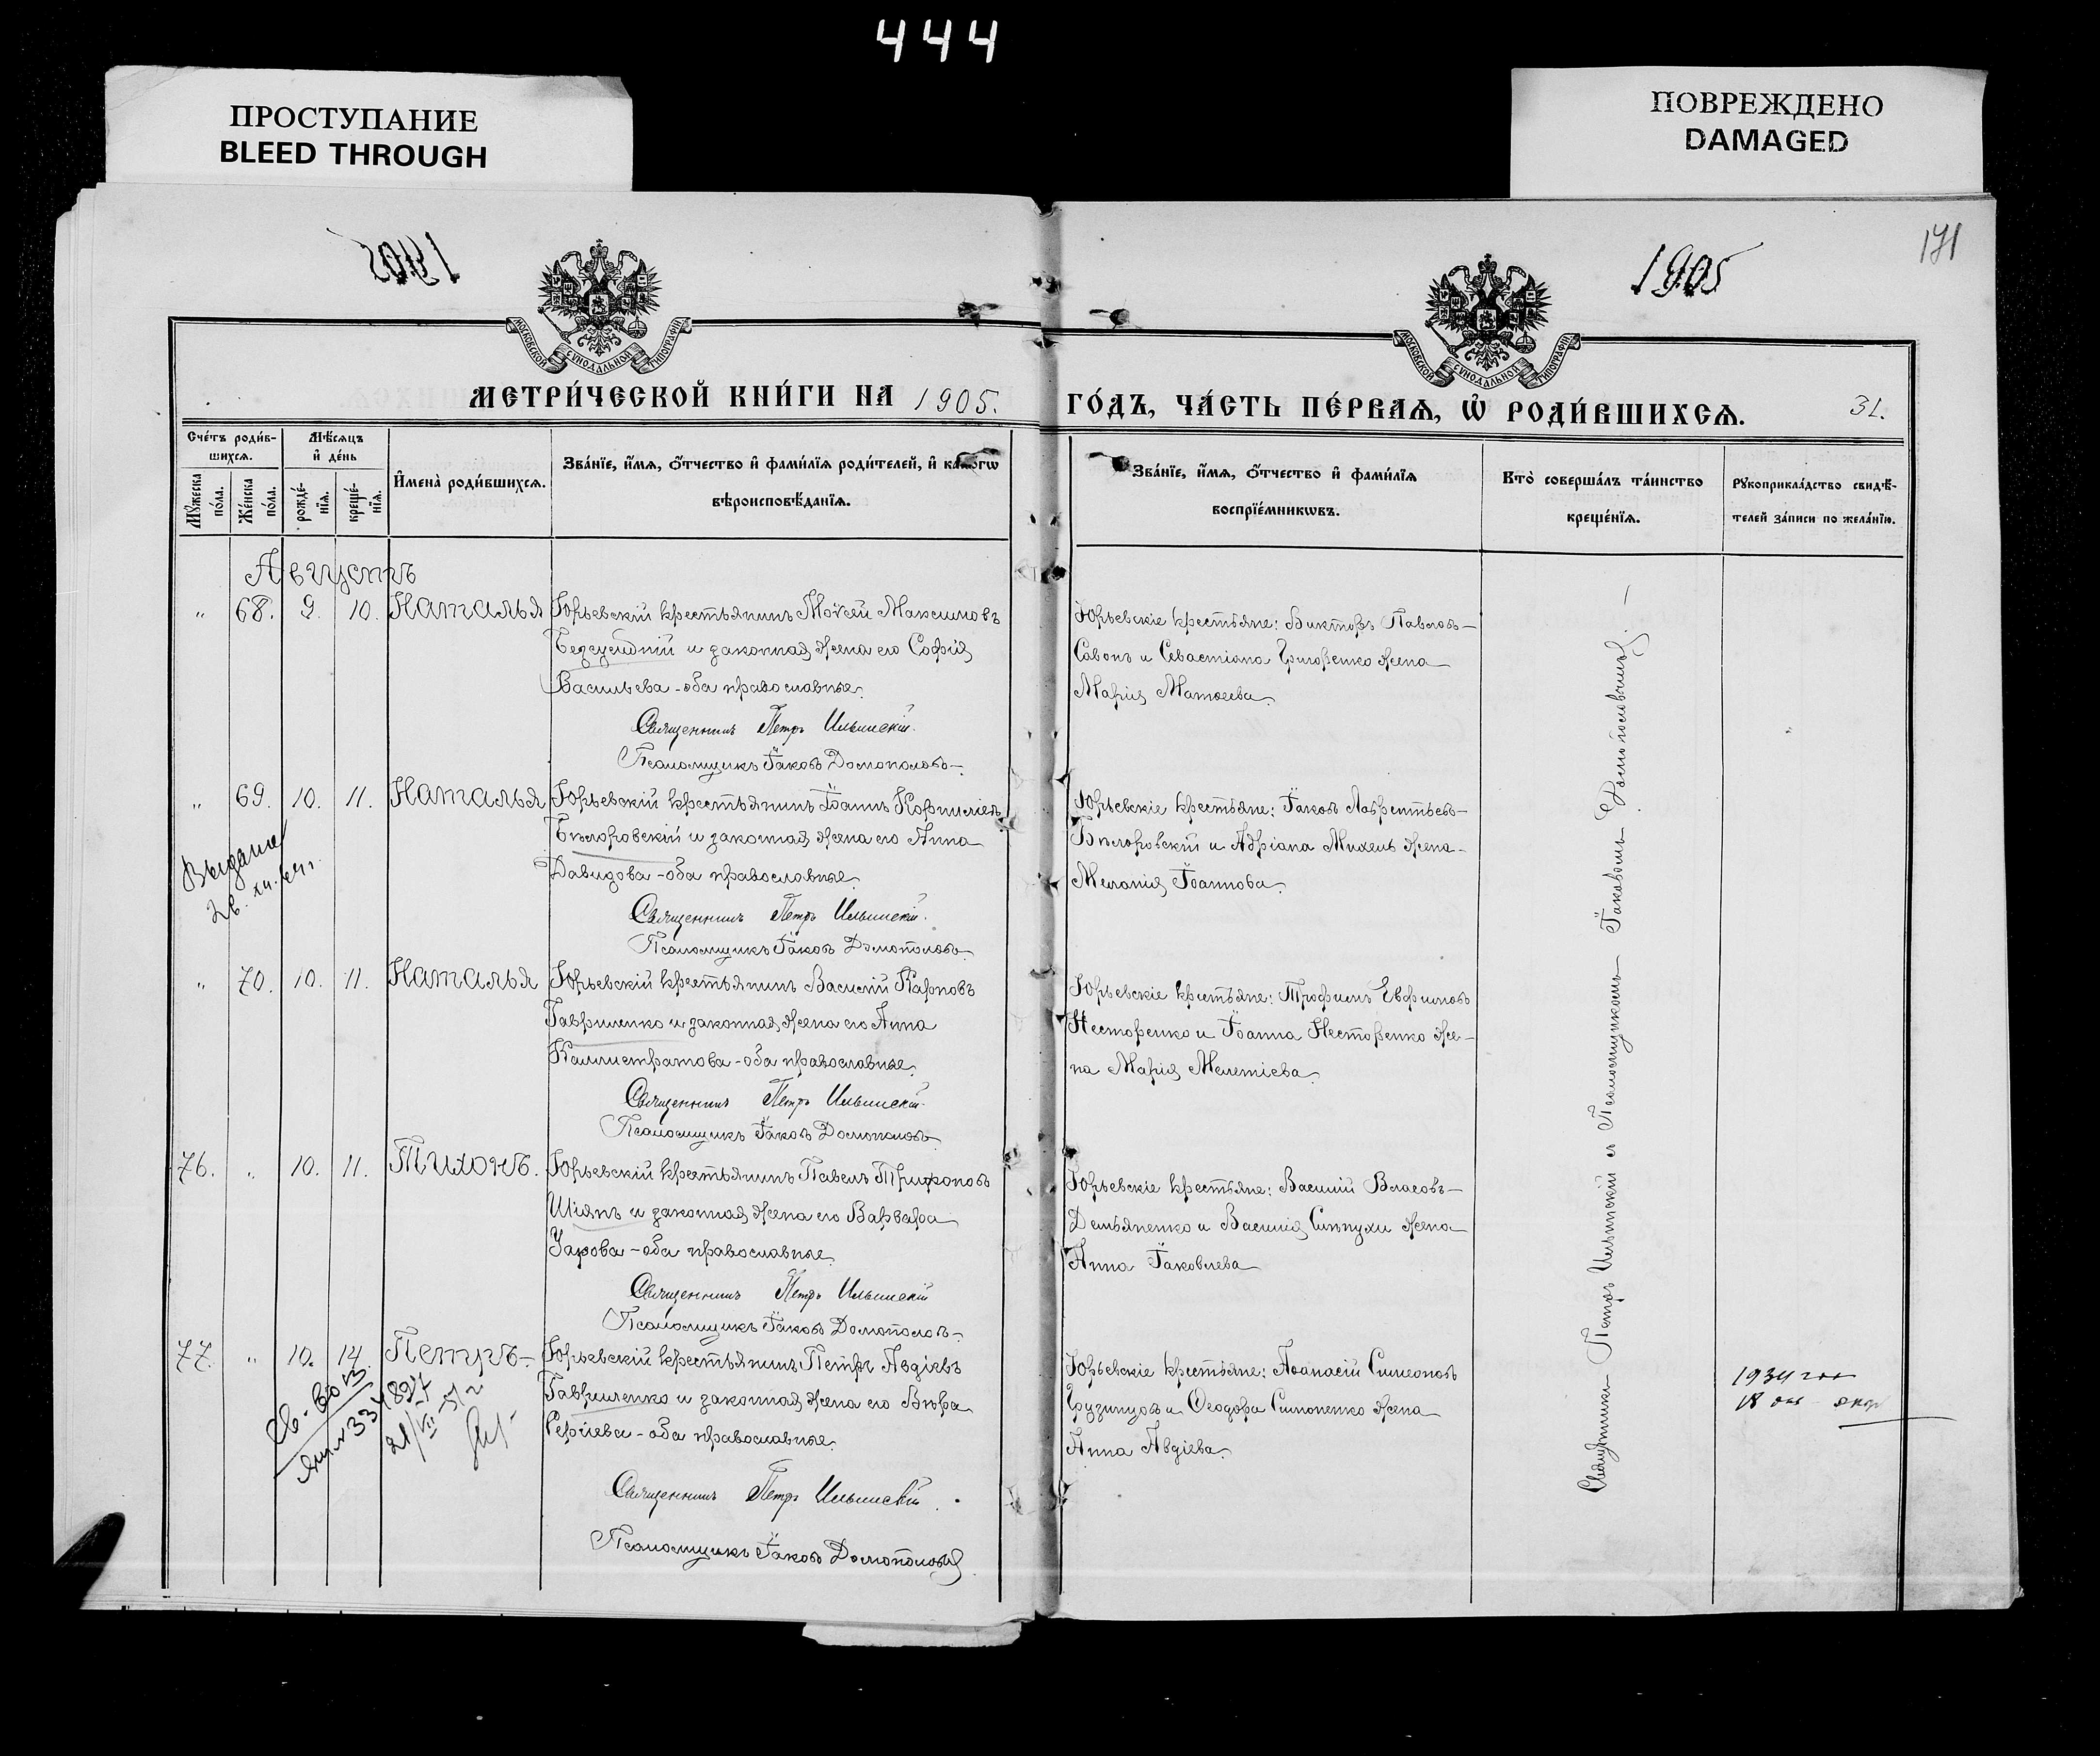 444
ПРОСТУПАНИЕ
BLEED THROUGH
ПОВРЕЖДЕНО
DAMAGED
171
1905
МОСКОВСКОЙ СѴНОДАЛЬНОЙ ТИПОГРАФІИ
МОСКОВСКОЙ СѴНОДАЛЬНОЙ ТИПОГРАФІИ
МЕТРИ́ЧЕСКОЙ КНИ́ГИ НА 1905. ГО́ДЪ, ЧА́СТЬ ПЕ́РВАѦ, Ѽ РОДИ́ВШИХСѦ. 31.
Сче́тъ роди́в-
шихсѧ.
Мꙋжеска по́ла.
Же́нска по́ла.
Мѣ́сѧцъ
и҆ де́нь
рожде́-
нїѧ.
креще́-
нїѧ.
И҆мена̀ роди́вшихсѧ.
Зва́нїе, и҆́мѧ, ѻ҆́тчество и҆ фами́лїѧ роди́телей, и҆ како́гѡ
вѣроисповѣ́данїѧ.
Зва́нїе, и҆́мѧ, ѻ҆́тчество и҆ фами́лїѧ
воспрїе́мникѡвъ.
Кто̀ соверша́лъ та́инство
креще́нїѧ.
Рꙋкоприкла́дство свидѣ́-
телей за́писи по жела́нїю.
Августъ
" 68. 9. 10. Наталья
Юрьевскій крестьянинъ Моѵсей Максимовъ
и законная жена его Софія
Васильева - оба православные.
Священникъ Петръ Ильинскій.
Псаломщикъ Іаковъ Домополовъ
Юрьевскіе крестьяне: Викторъ Павловъ
Савонъ и Севастіана Григоренко жена
Марія Матѳеева.
" 69. 10. 11. Наталья
Юрьевскій крестьянинъ Іоаннъ Корниліевъ
Бѣлоровскій и законная жена его Анна
Давидова - оба православные.
Священникъ Петръ Ильинскій.
Псаломщикъ Іаковъ Домополовъ
Юрьевскіе крестьяне: Іаковъ Лаврентьевъ
Бѣлоровскій и Адріана Михель жена
Меланія Іоаннова.
" 70. 10. 11. Наталья
Юрьевскій крестьянинъ Василій Карповъ
Гавриленко и законная жена его Анна
Каллистратова - оба православные.
Священникъ Петръ Ильинскій
Псаломщикъ Іаковъ Домополовъ
Юрьевскіе крестьяне: Трофимъ Евфимовъ
Несторенко и Іоанна Несторенко же-
на Марія Мелетіева.
76. " 10. 11. Тихонъ.
Юрьевскій крестьянинъ Павелъ Трифоновъ
Шіянъ и законная жена его Варвара
Уарова - оба православные.
Священникъ Петръ Ильинскій
Псаломщикъ Іаковъ Домополовъ
Юрьевскіе крестьяне: Василій Власовъ
Демьяненко и Василія жена
Анна Іаковлева
77. " 10. 14. Петръ
Юрьевскій крестьянинъ Петръ Авдіевъ
Гавриленко и законная жена его Вѣра
Сергіева - оба православные.
Священникъ Петръ Ильинскій.
Псаломщикъ Іаковъ Домополовъ
Юрьевскіе крестьяне: Аѳанасій Симеоновъ
Грузинцовъ и Ѳеодора Симоненко жена
Анна Авдіева.
Священникъ Петръ Ильинскій съ Псаломщикомъ Іаковомъ Домополовымъ.
1934
18